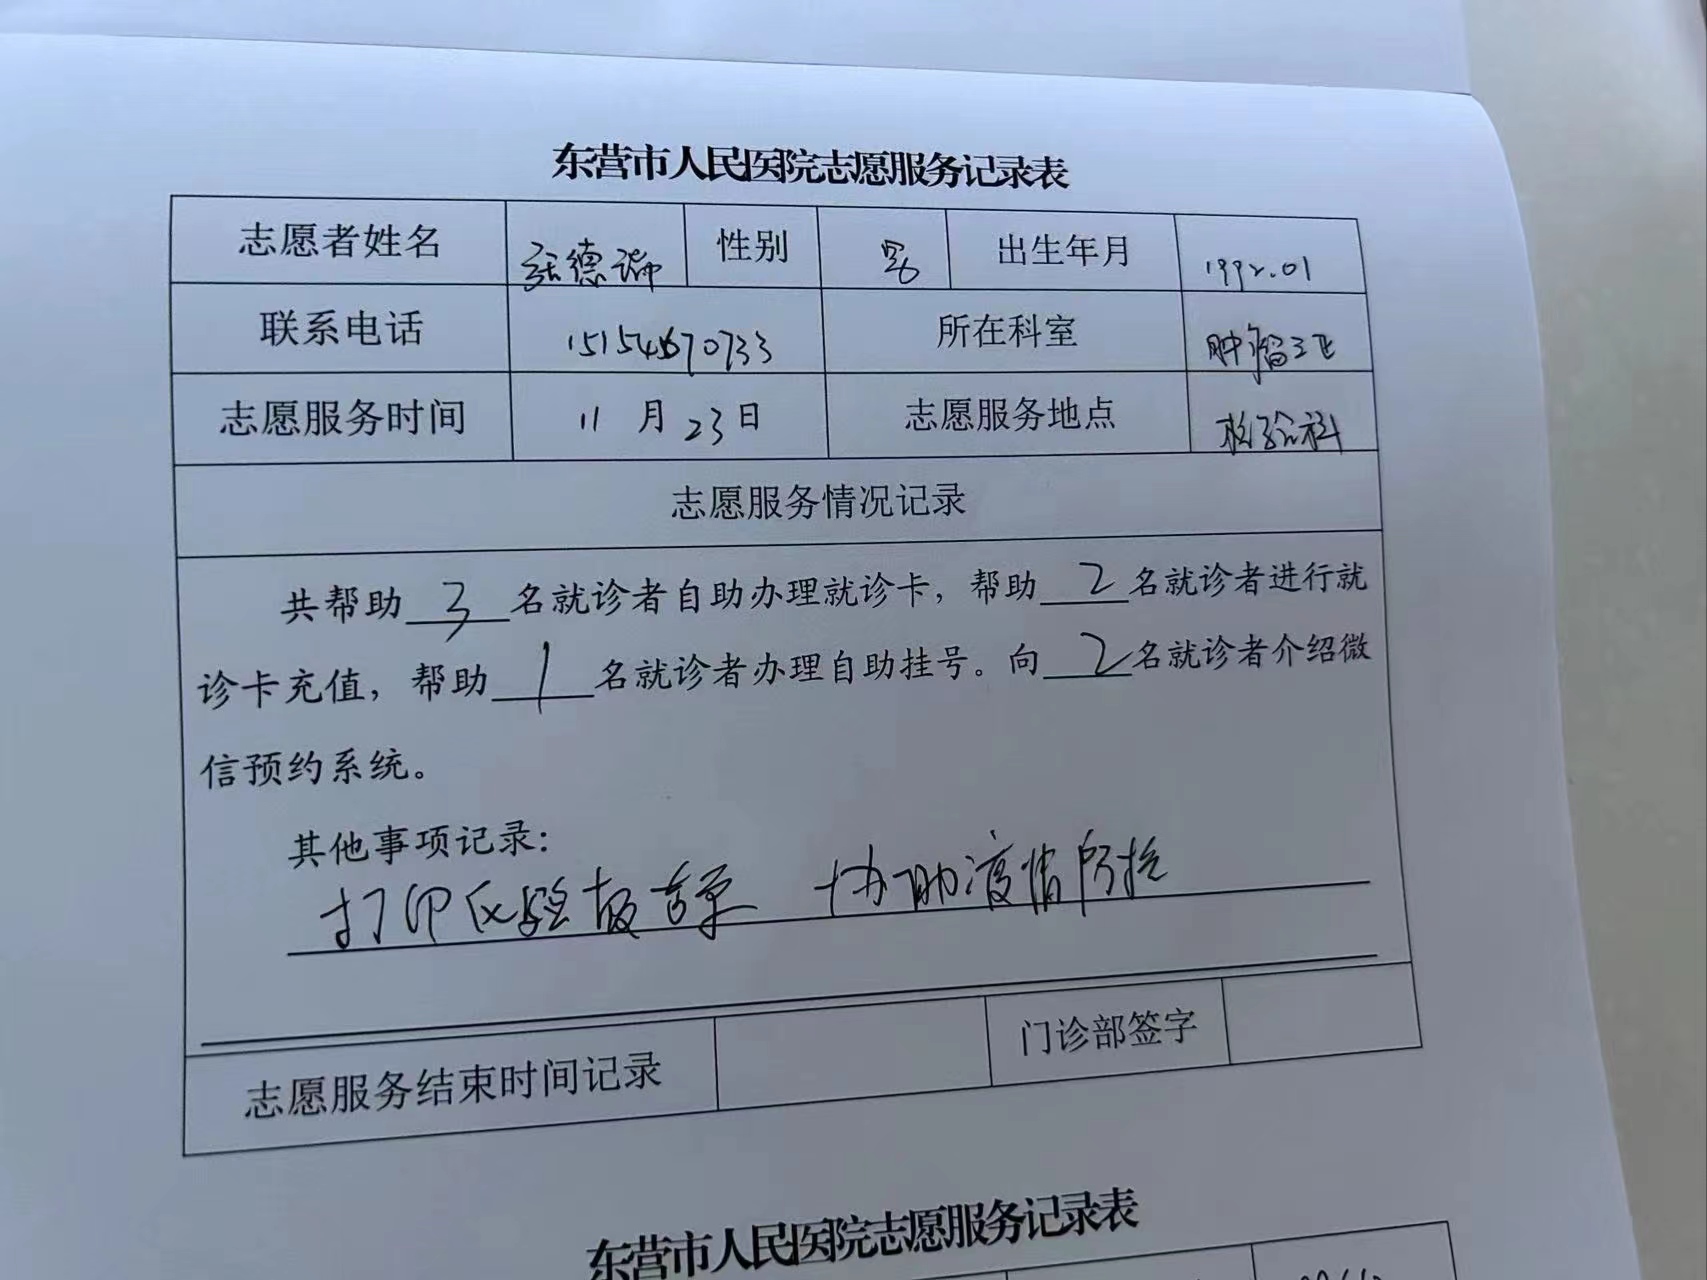 东营市人民医院志愿服务记录表
志愿者姓名 张德瑞 性别 男 出生年月 1992.01
联系电话 15154670733 所在科室 肿瘤三区
志愿服务时间 11月23日 志愿服务地点 检验科
志愿服务情况记录
共帮助 3 名就诊者自助办理就诊卡，帮助 2 名就诊者进行就
诊卡充值，帮助 1 名就诊者办理自助挂号。向 2 名就诊者介绍微
信预约系统。
其他事项记录：
打印化验报告单 协助疫情防控
志愿服务结束时间记录 门诊部签字
东营市人民医院志愿服务记录表